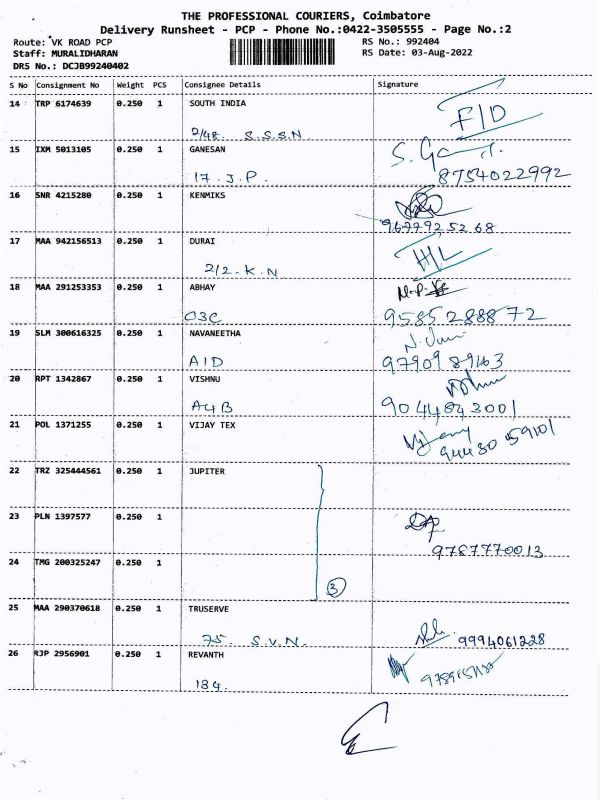 THE PROFESSIONAL COURIERS, Coimbatore
Delivery Runsheet - PCP - Phone No.:0422-3505555 - Page No.:2
Route: VK ROAD PCP RS No.: 992404
Staff: MURALIDHARAN RS Date: 03-Aug-2022
DRS No.: DCJB99240402
S No Consignment No Weight PCS Consignee Details Signature
14 TRP 6174639 0.250 1 SOUTH INDIA
2/48. S.S.S.N. F/D
15 IXM 5013105 0.250 1 GANESAN
17. J.P. 8754022992
16 SNR 4215280 0.250 1 KENMIKS
9677925268
17 MAA 942156513 0.250 1 DURAI
2/2. K.N H/L
18 MAA 291253353 0.250 1 ABHAY
03C 9585288872
19 SLM 300616325 0.250 1 NAVANEETHA
A1D 9790989163
20 RPT 1342867 0.250 1 VISHNU
A4B 9044843001
21 POL 1371255 0.250 1 VIJAY TEX
9443059101
22 TRZ 325444561 0.250 1 JUPITER
23 PLN 1397577 0.250 1
9787770013
24 TMG 200325247 0.250 1
3
25 MAA 290370618 0.250 1 TRUSERVE
75. S.V.N. 9994061228
26 RJP 2956901 0.250 1 REVANTH
134.